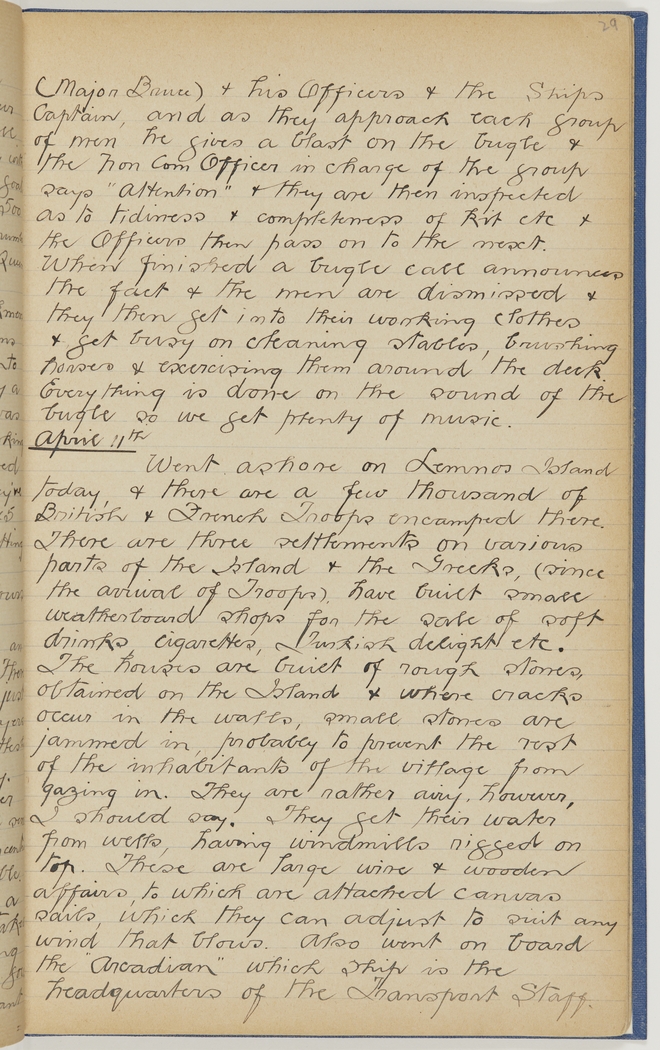 29
(Major Bruce) & his Officers & the Ships
Captain, and as they approach each group
of men he gives a blast on the bugle &
the Non Com Officer in charge of the group
says "Attention" & they are then inspected
as to tidiness & completeness of Kit etc &
the Officers then pass on to the next.
When finished a bugle call announces
the fact & the men are dismissed &
they then get into their working clothes
& get busy on cleaning stables, brushing
horses & exercising them around the deck
Everything is done on the sound of the
bugle so we get plenty of music.
April 11th
Went ashore on Lemnos Island
today, & there are a few thousand of
British & French Troops encamped there.
There are three settlements on various
parts of the Island & the Greeks, (since
the arrival of Troops), have built small
weatherboard shops for the sale of soft
drinks, cigarettes, Turkish delight etc.
The houses are built of rough stones,
obtained on the Island & where cracks
occur in the walls, small stones are
jammed in, probably to prevent the rest
of the inhabitants of the village from
gazing in. They are rather airy, however,
I should say. They get their water
from wells, having windmills rigged on
top. These are large wire & wooden
affairs, to which are attached canvas
sails, which they can adjust to suit any
wind that blows. Also went on board
the "Arcadian" which ship is the
headquarters of the Transport Staff.